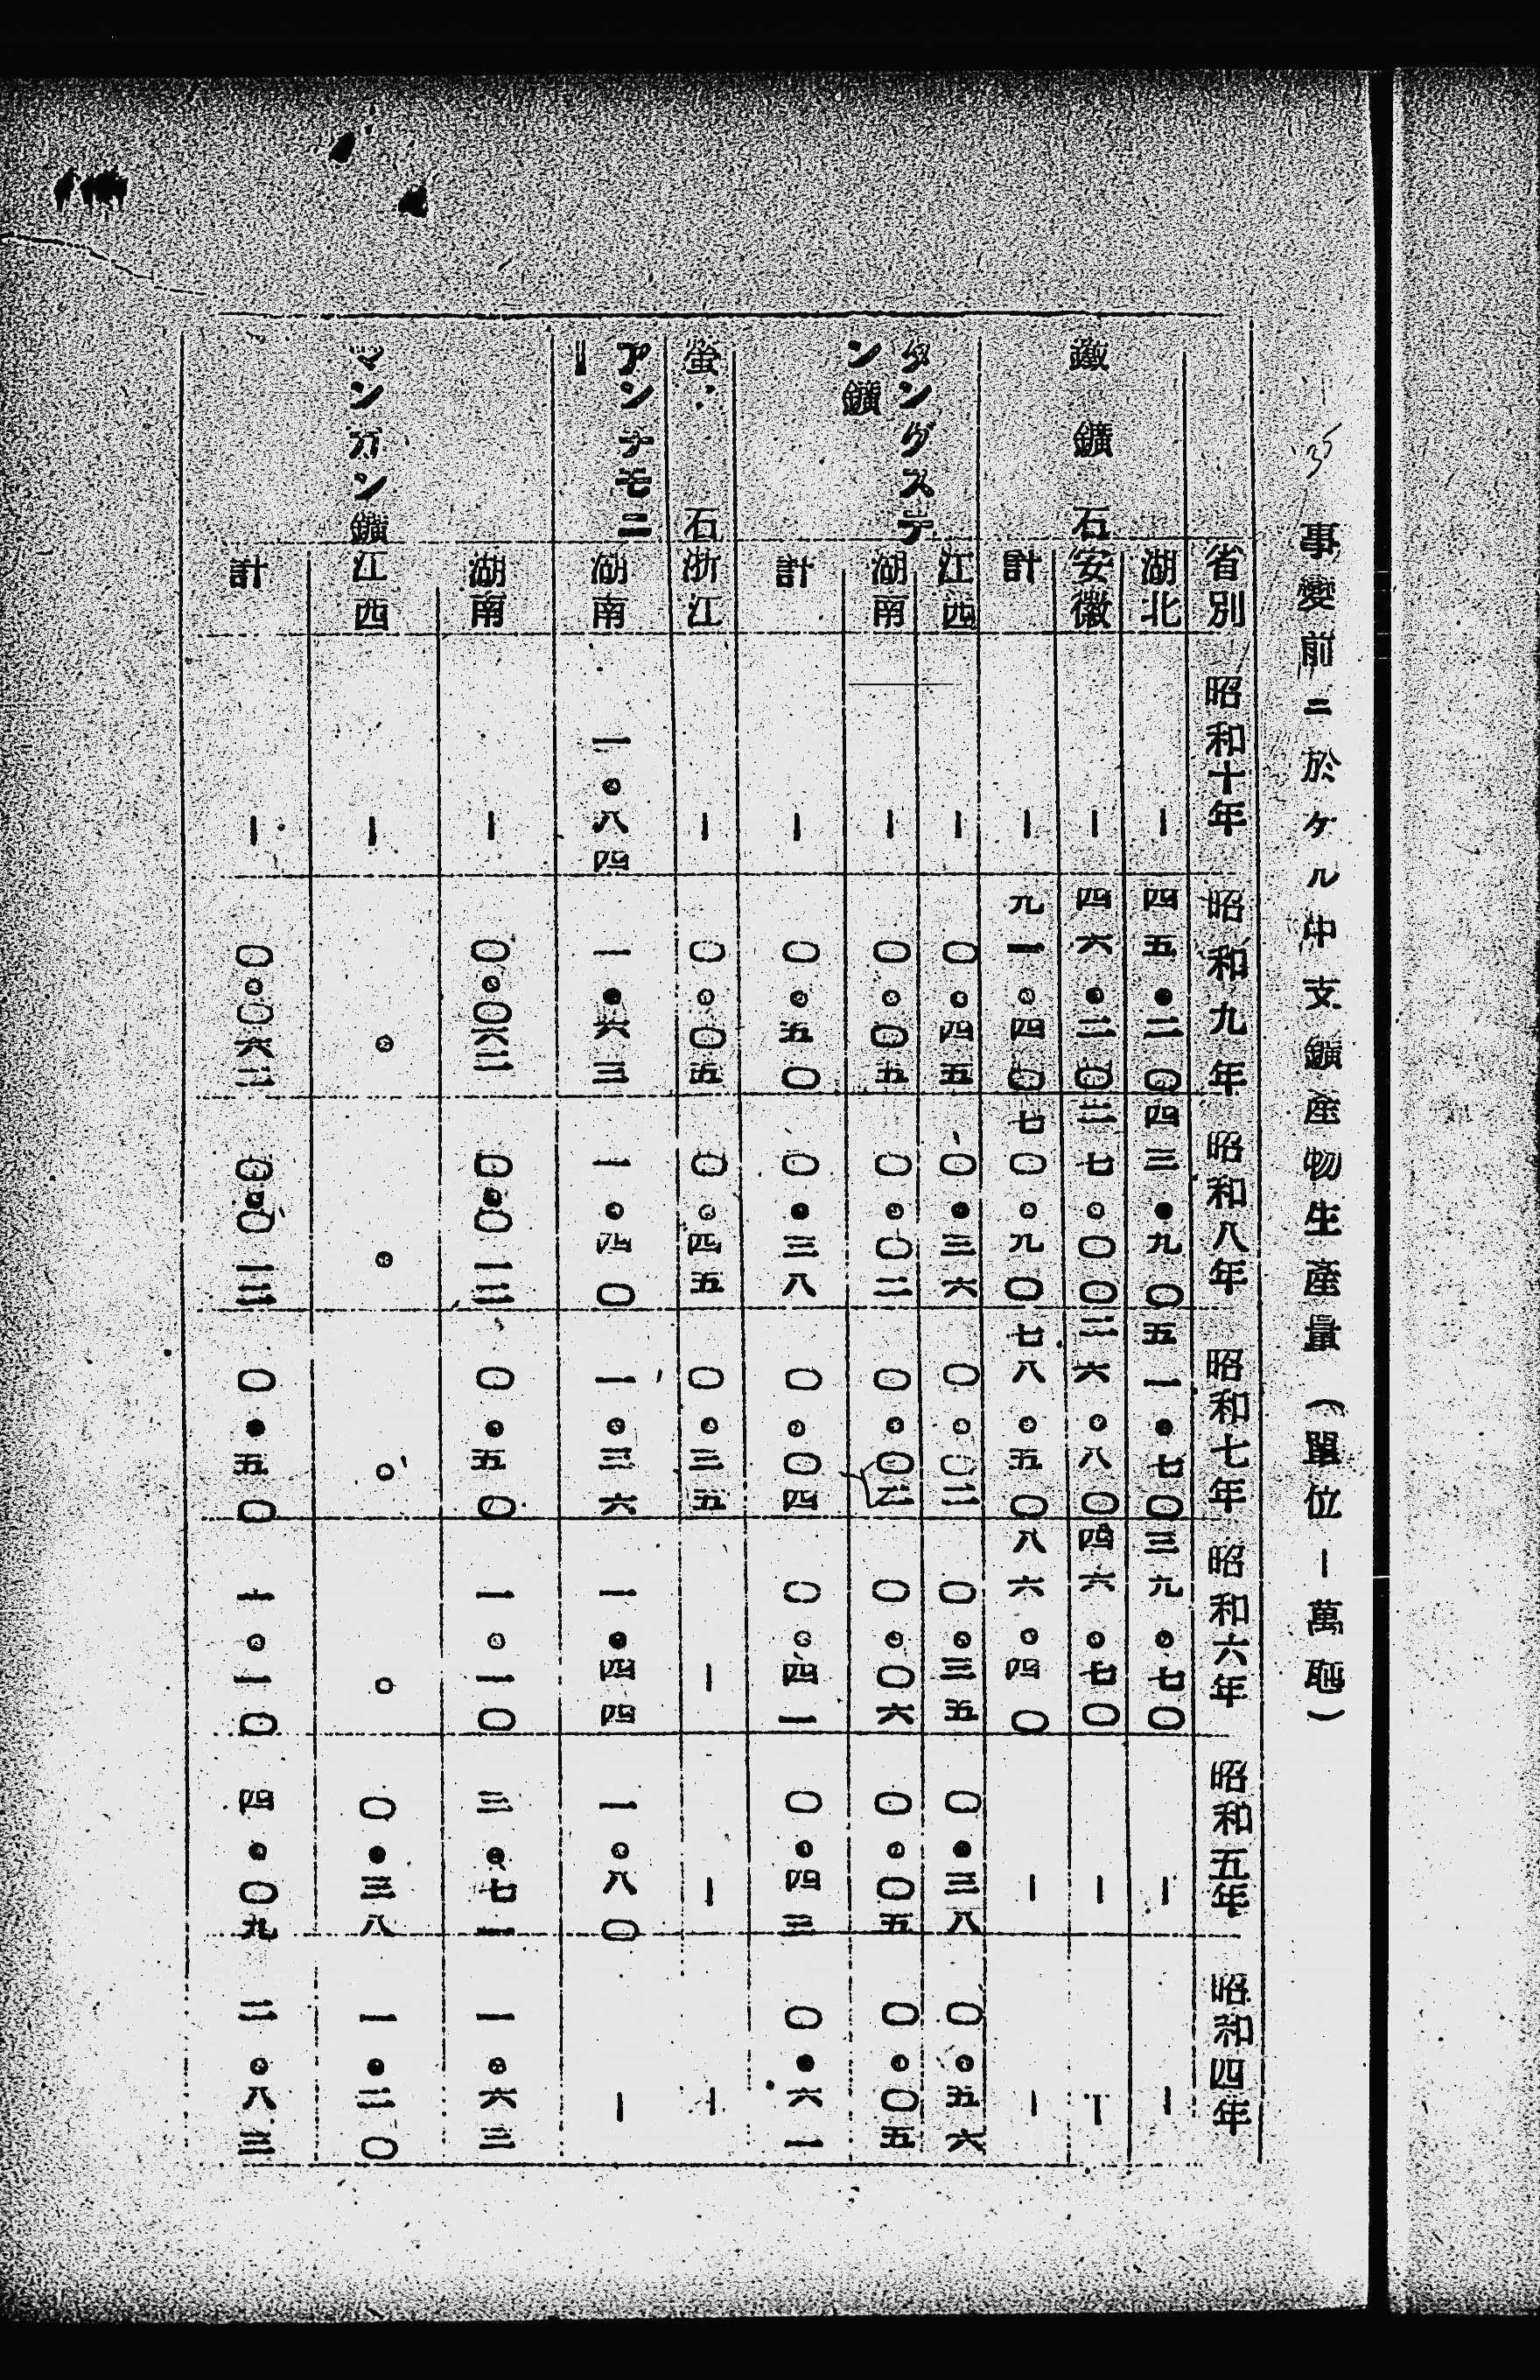 35
事變前ニ於ケル中支鑛産物生產量（單位ー萬瓲）
省別 昭和十年 昭和九年 昭和八年 昭和七年 昭和六年 昭和五年 昭和四年
鐵鑛石
湖北 ー 四五・二〇 四三・九〇 五一・七〇 三九・七〇 ー ー
安徽 ー 四六・二〇 二七・〇〇 二六・八〇 四六・七〇 ー ー
計 ー 九一・四〇 七〇・九〇 七八・五〇 八六・四〇 ー ー
タングステ
ン鑛
江西 ー 〇・四五 〇・三六 〇・〇二 〇・三五 〇・三八 〇・五六
湖南 ー 〇・〇五 〇・〇二 〇・〇二 〇・〇六 〇・〇五 〇・〇五
計 ー 〇・五〇 〇・三八 〇・〇四 〇・四一 〇・四三 〇・六一
螢石
浙江 ー 〇・〇五 〇・四五 〇・三五 ー ー ー
アンチモニ
ー
湖南 一・八四 一・六三 一・四〇 一・三六 一・四四 一・八〇 ー
マンガン鑛
湖南 ー 〇・〇六二 〇・〇一三 〇・五〇 一・一〇 三・七一 一・六三
江西 ー 。 。 。 。 〇・三八 一・二〇
計 ー 〇・〇六二 〇・〇一三 〇・五〇 一・一〇 四・〇九 二・八三